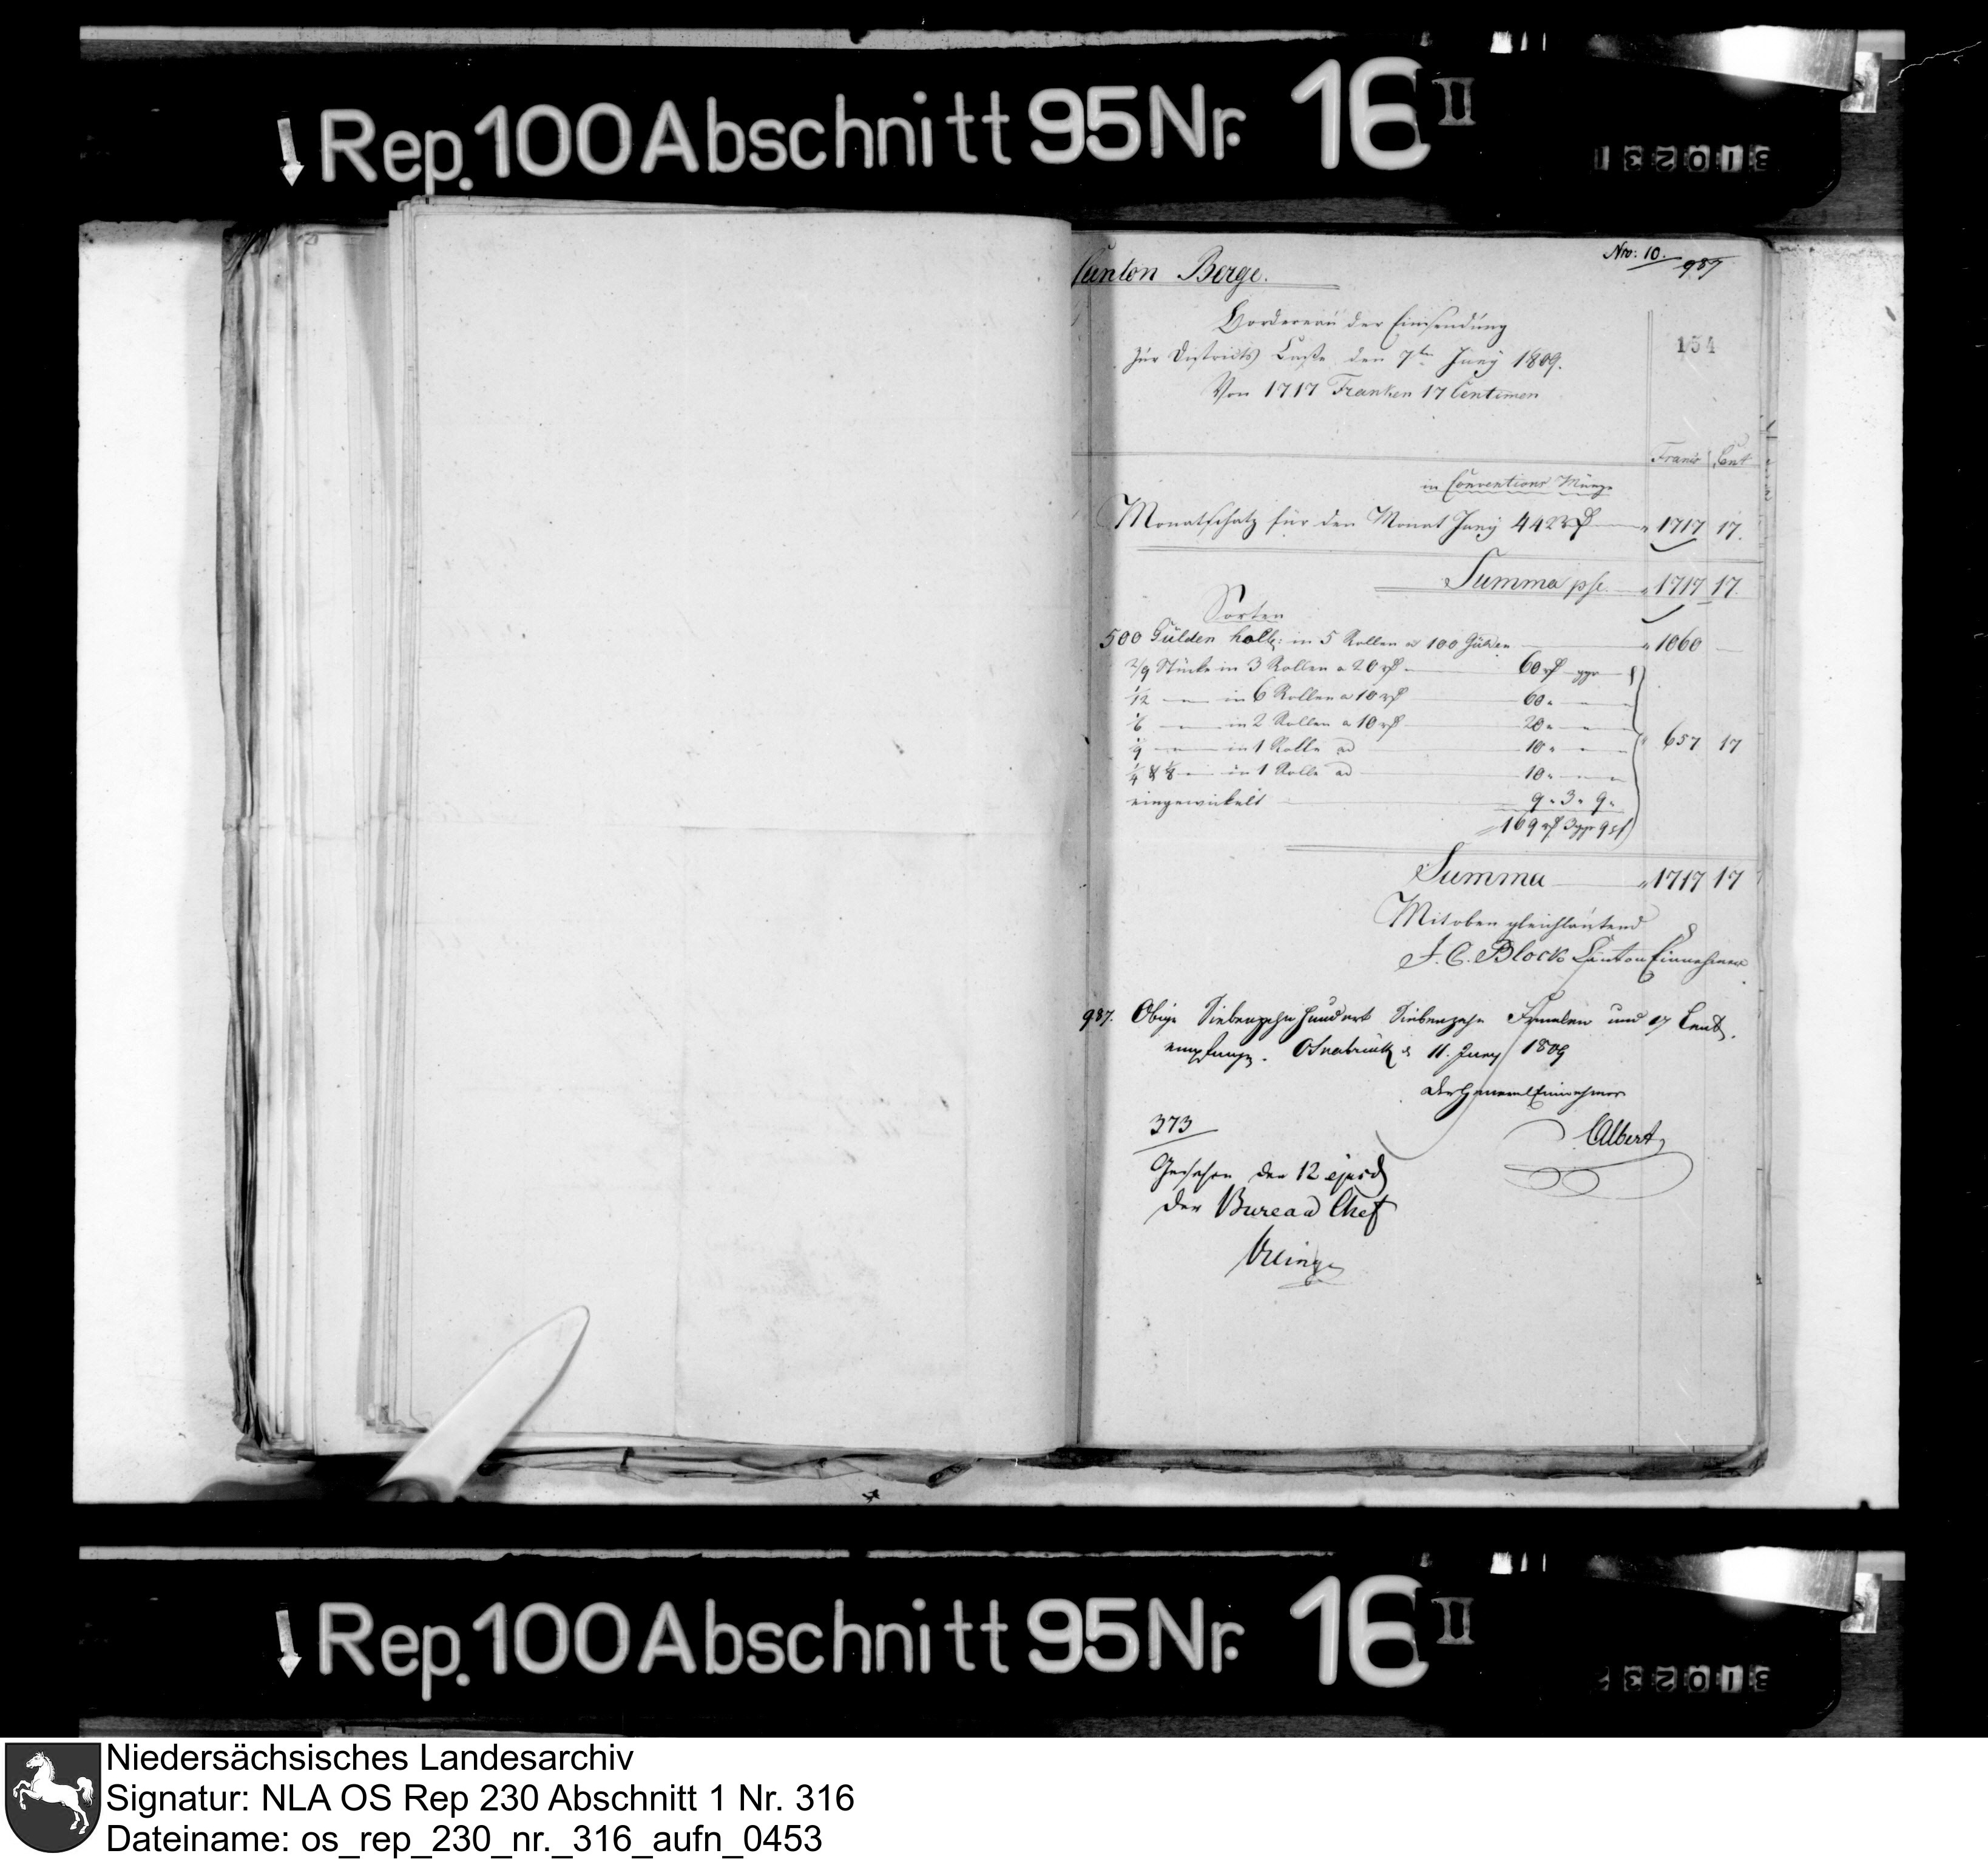 Rep. 100 Abschnitt 95 Nr. 16 II
Canton Berge.
Nro: 10.
987
Bordereau der Einsendung
zur Districts Casse den 7ten Juny 1809.
Von 1717 Franken 17 Centimen
154
Francs Cent
in Conventions Münze
Monatschatz für den Monat Juny 442 rth 1717 17.
Summa pse. 1717 17.
Sorten
500 Gulden holl: in 5 Rollen a 100 Gulden 1060
2/9 Stücke in 3 Rollen a 20 rth 60 rth ggr
1/12 — in 6 Rollen a 10 rth 60
1/6 — in 2 Rollen a 10 rth 20
— in 1 Rolle ad 10
1/4 & 1/8 — in 1 Rolle ad 10
657 17
eingewickelt 9 " 3 " 9 "
169 rth 3 ggr 9 pf
Summa 1717 17
Mit oben gleichlautend
J. C. Block Canton Einnehmer
987. Obige Siebenzehnhundert Siebenzehn Franken und 17 Cent.
empfangen. Osnabrück d 11. Juny 1809
Der General Einnehmer
Albert
373
Gesehen den 12 ejusd
Der Bureau Chef
Rep. 100 Abschnitt 95 Nr. 16 II
Niedersächsisches Landesarchiv
Signatur: NLA OS Rep 230 Abschnitt 1 Nr. 316
Dateiname: os_rep_230_nr._316_aufn_0453